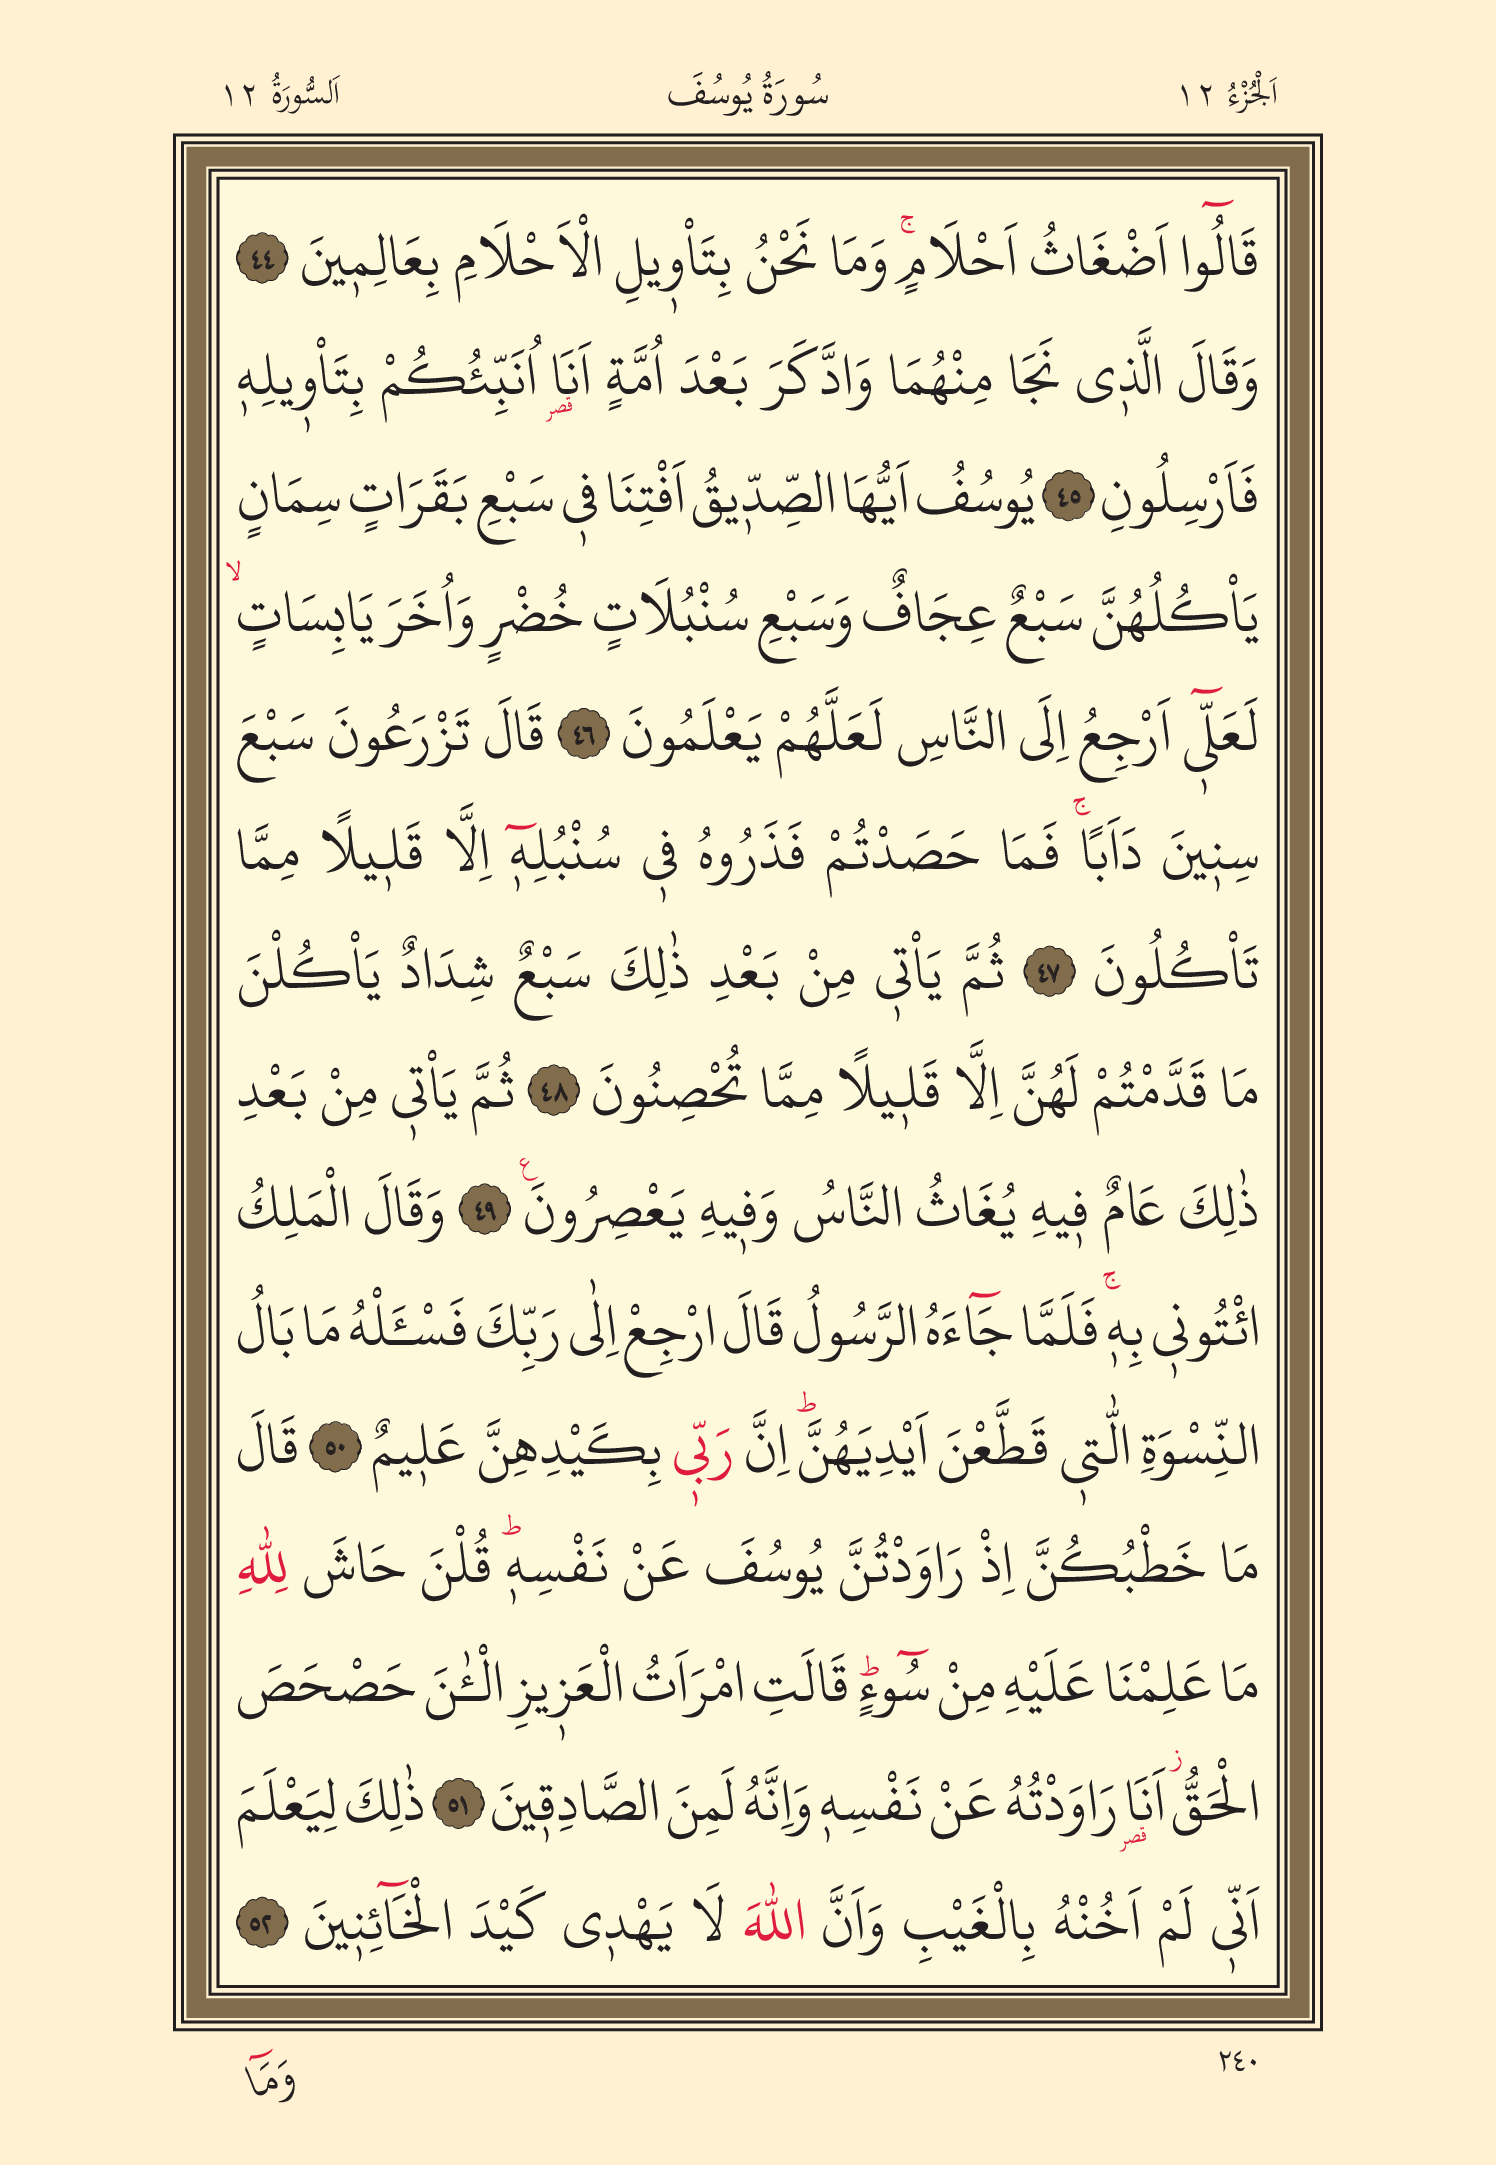 اَلْجُزْءُ ١٢
سُورَةُ يُوسُفَ
اَلسُّورَةُ ١٢
قَالُٓوا اَضْغَاثُ اَحْلَامٍۚ وَمَا نَحْنُ بِتَاْو۪يلِ الْاَحْلَامِ بِعَالِم۪ينَ ﴿٤٤﴾
وَقَالَ الَّذ۪ى نَجَا مِنْهُمَا وَادَّكَرَ بَعْدَ اُمَّةٍ اَنَا۬ قصر اُنَبِّئُكُمْ بِتَاْو۪يلِه۪
فَاَرْسِلُونِ ﴿٤٥﴾ يُوسُفُ اَيُّهَا الصِّدّ۪يقُ اَفْتِنَا ف۪ى سَبْعِ بَقَرَاتٍ سِمَانٍ
يَاْكُلُهُنَّ سَبْعٌ عِجَافٌ وَسَبْعِ سُنْبُلَاتٍ خُضْرٍ وَاُخَرَ يَابِسَاتٍۙ
لَعَلّ۪ٓى اَرْجِعُ اِلَى النَّاسِ لَعَلَّهُمْ يَعْلَمُونَ ﴿٤٦﴾ قَالَ تَزْرَعُونَ سَبْعَ
سِن۪ينَ دَاَبًاۚ فَمَا حَصَدْتُمْ فَذَرُوهُ ف۪ى سُنْبُلِه۪ٓ اِلَّا قَل۪يلًا مِمَّا
تَاْكُلُونَ ﴿٤٧﴾ ثُمَّ يَاْت۪ى مِنْ بَعْدِ ذٰلِكَ سَبْعٌ شِدَادٌ يَاْكُلْنَ
مَا قَدَّمْتُمْ لَهُنَّ اِلَّا قَل۪يلًا مِمَّا تُحْصِنُونَ ﴿٤٨﴾ ثُمَّ يَاْت۪ى مِنْ بَعْدِ
ذٰلِكَ عَامٌ ف۪يهِ يُغَاثُ النَّاسُ وَف۪يهِ يَعْصِرُونَ ع ﴿٤٩﴾ وَقَالَ الْمَلِكُ
ائْتُون۪ى بِه۪ۚ فَلَمَّا جَٓاءَهُ الرَّسُولُ قَالَ ارْجِعْ اِلٰى رَبِّكَ فَسْـَٔلْهُ مَا بَالُ
النِّسْوَةِ الّٰت۪ى قَطَّعْنَ اَيْدِيَهُنَّۜ اِنَّ رَبّ۪ى بِكَيْدِهِنَّ عَل۪يمٌ ﴿٥٠﴾ قَالَ
مَا خَطْبُكُنَّ اِذْ رَاوَدْتُنَّ يُوسُفَ عَنْ نَفْسِه۪ۜ قُلْنَ حَاشَ لِلّٰهِ
مَا عَلِمْنَا عَلَيْهِ مِنْ سُٓوءٍۜ قَالَتِ امْرَاَتُ الْعَز۪يزِ الْـٰٔنَ حَصْحَصَ
الْحَقُّۘ اَنَا۬ قصر رَاوَدْتُهُ عَنْ نَفْسِه۪ وَاِنَّهُ لَمِنَ الصَّادِق۪ينَ ﴿٥١﴾ ذٰلِكَ لِيَعْلَمَ
اَنّ۪ى لَمْ اَخُنْهُ بِالْغَيْبِ وَاَنَّ اللّٰهَ لَا يَهْد۪ى كَيْدَ الْخَٓائِن۪ينَ ﴿٥٢﴾
٢٤٠
وَمَٓا